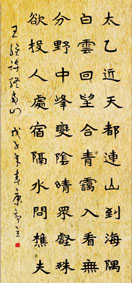 太乙近天都連山到海隅
白雲回望合青靄入看無
分野中峰變陰晴眾壑殊
欲投人處宿隔水問樵夫
王維詩終南山